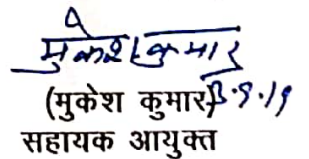 मुकेश कुमार
(मुकेश कुमार) 3.9.19
सहायक आयुक्त